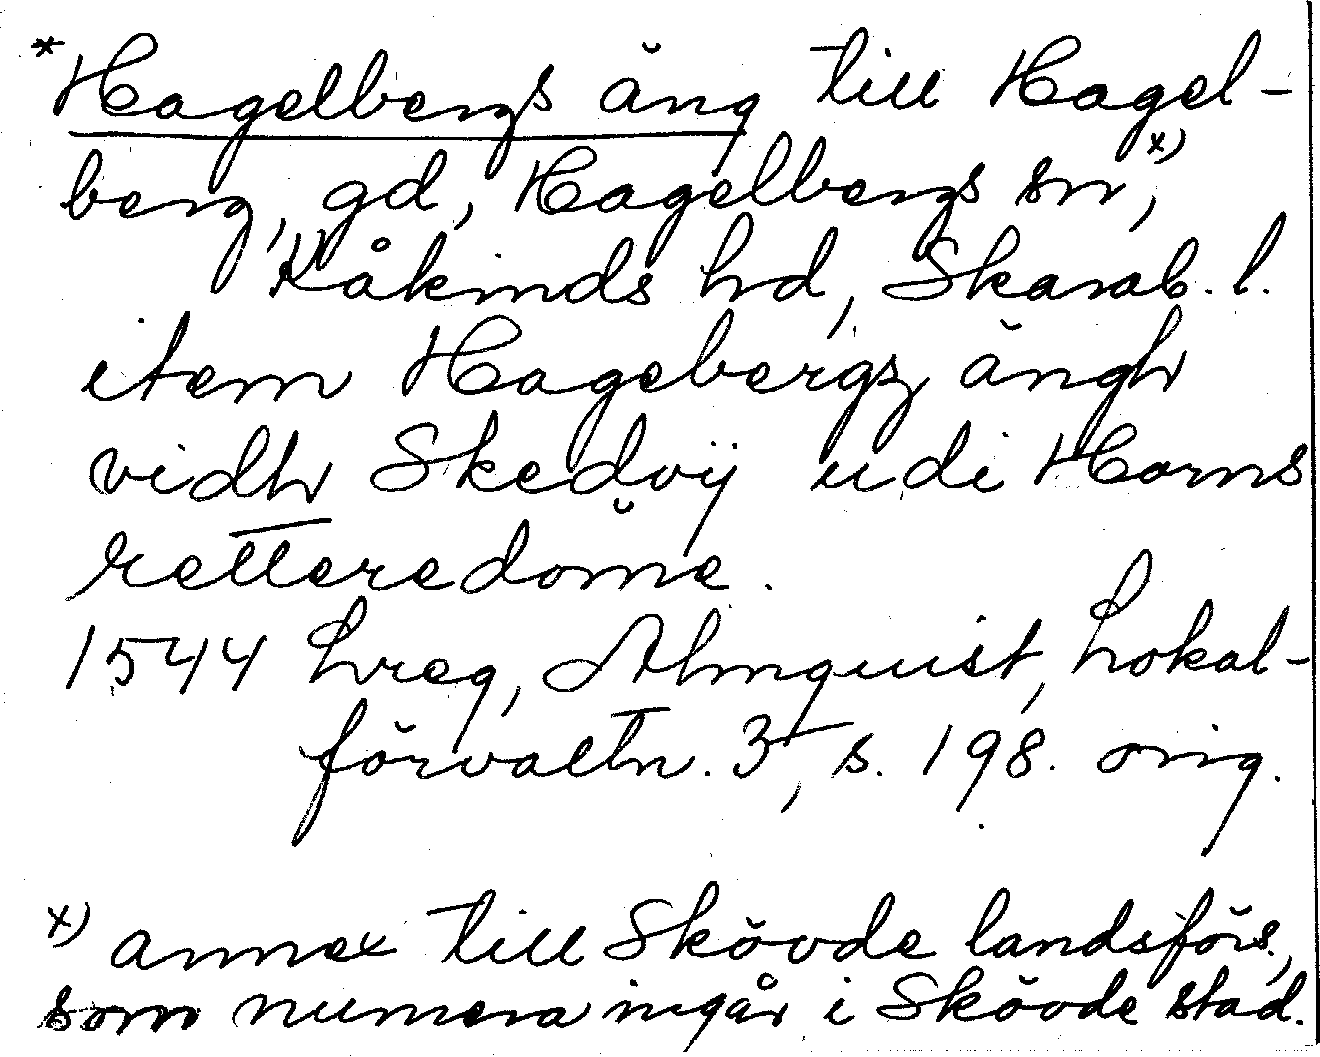 *Hagelbergs äng till Hagel-
berg, gd, Hagelbergs sn,x)
Kåkinds hd, Skarab. l.
item Hagebergz ängh
vidh Skedvÿ udi Horns
retteredöme.
1544 hreg, Almquist, Lokal-
förvaltn. 3, s. 198. orig.
x) annex till Skövde landsförs,
som numera ingår i Skövde stad.